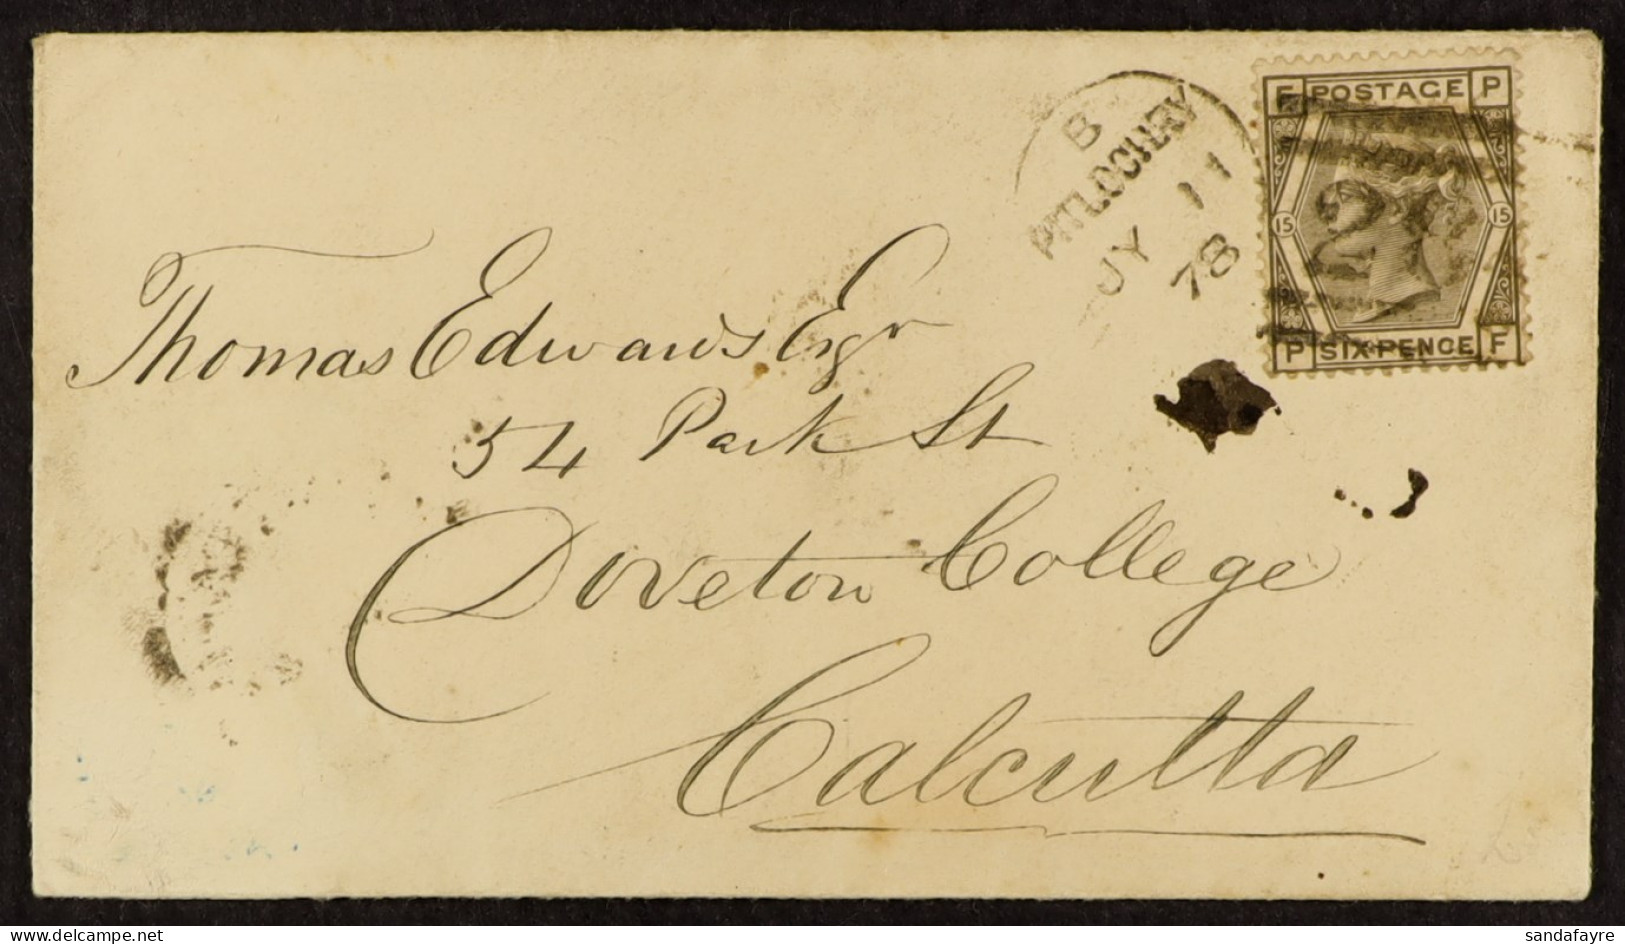 F POSTAGE P
15 15
P SIX PENCE F
B
PITLOCHRY
JY 11
78
Thomas Edwards Esqr
54 Park St
Doveton College
Calcutta
sandafayre